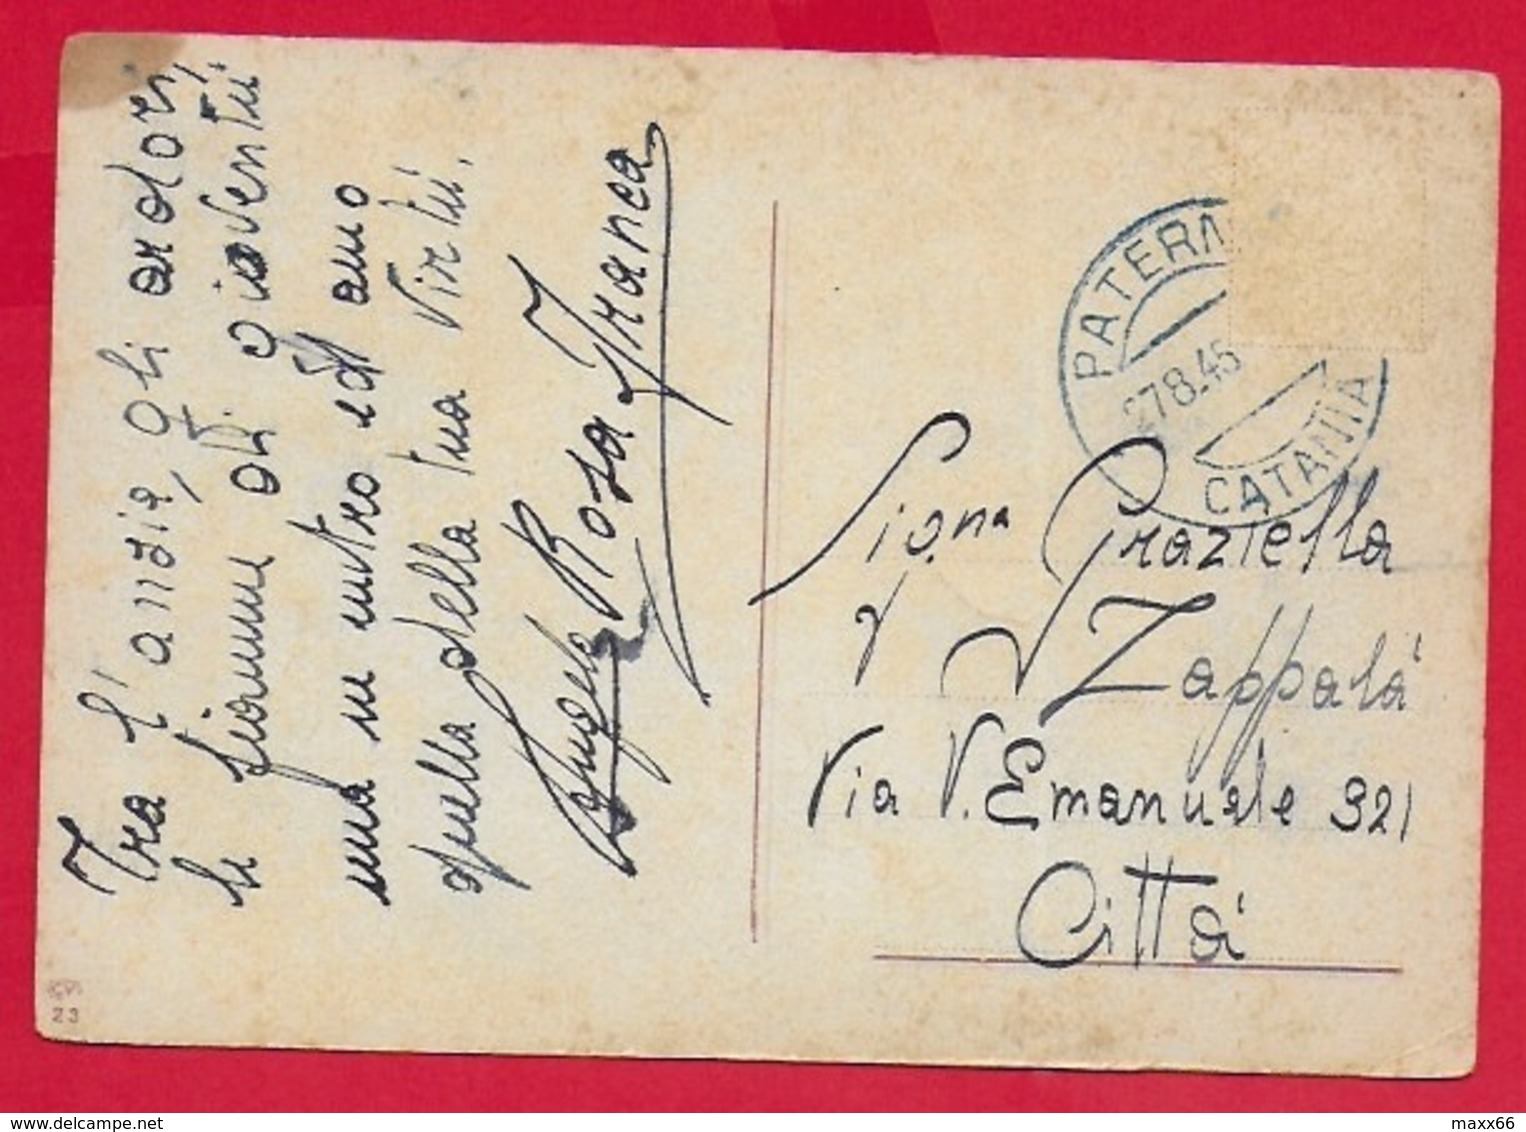 Tra l'ansia, gli ardori,
le fiamme di gioventù
una m'entro ed amo
quella della tua virtù.
Angela Rosa Franca
PATERN
27.8.45
CATANIA
Sig.na Graziella
Zappalà
Via V. Emanuele 321
Città
23
maxx66